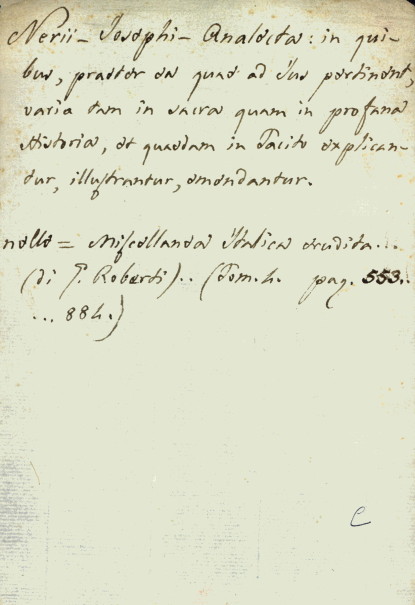 Nerii - Josephi - Analecta: in qui-
bus, praeter ea quae ad Jus pertinent,
varia tam in sacra quam in profana
Historia, et quaedam in Tacito explican-
tur, illustrantur, emendantur.
nelle = Miscellanea Italica erudita...
(di G. Roberti).. (Tom. 4. pag. 553..
... 884.)
C